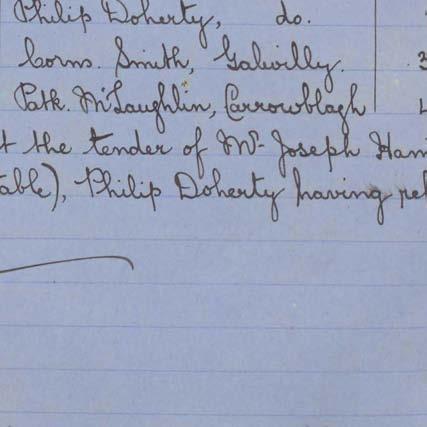 Philip Doherty, do.
Corns. Smith, Galwilly. 3
Patk. McLaughlin, Carrowblagh
the tender of Mr. Joseph Ham
table), Philip Doherty having